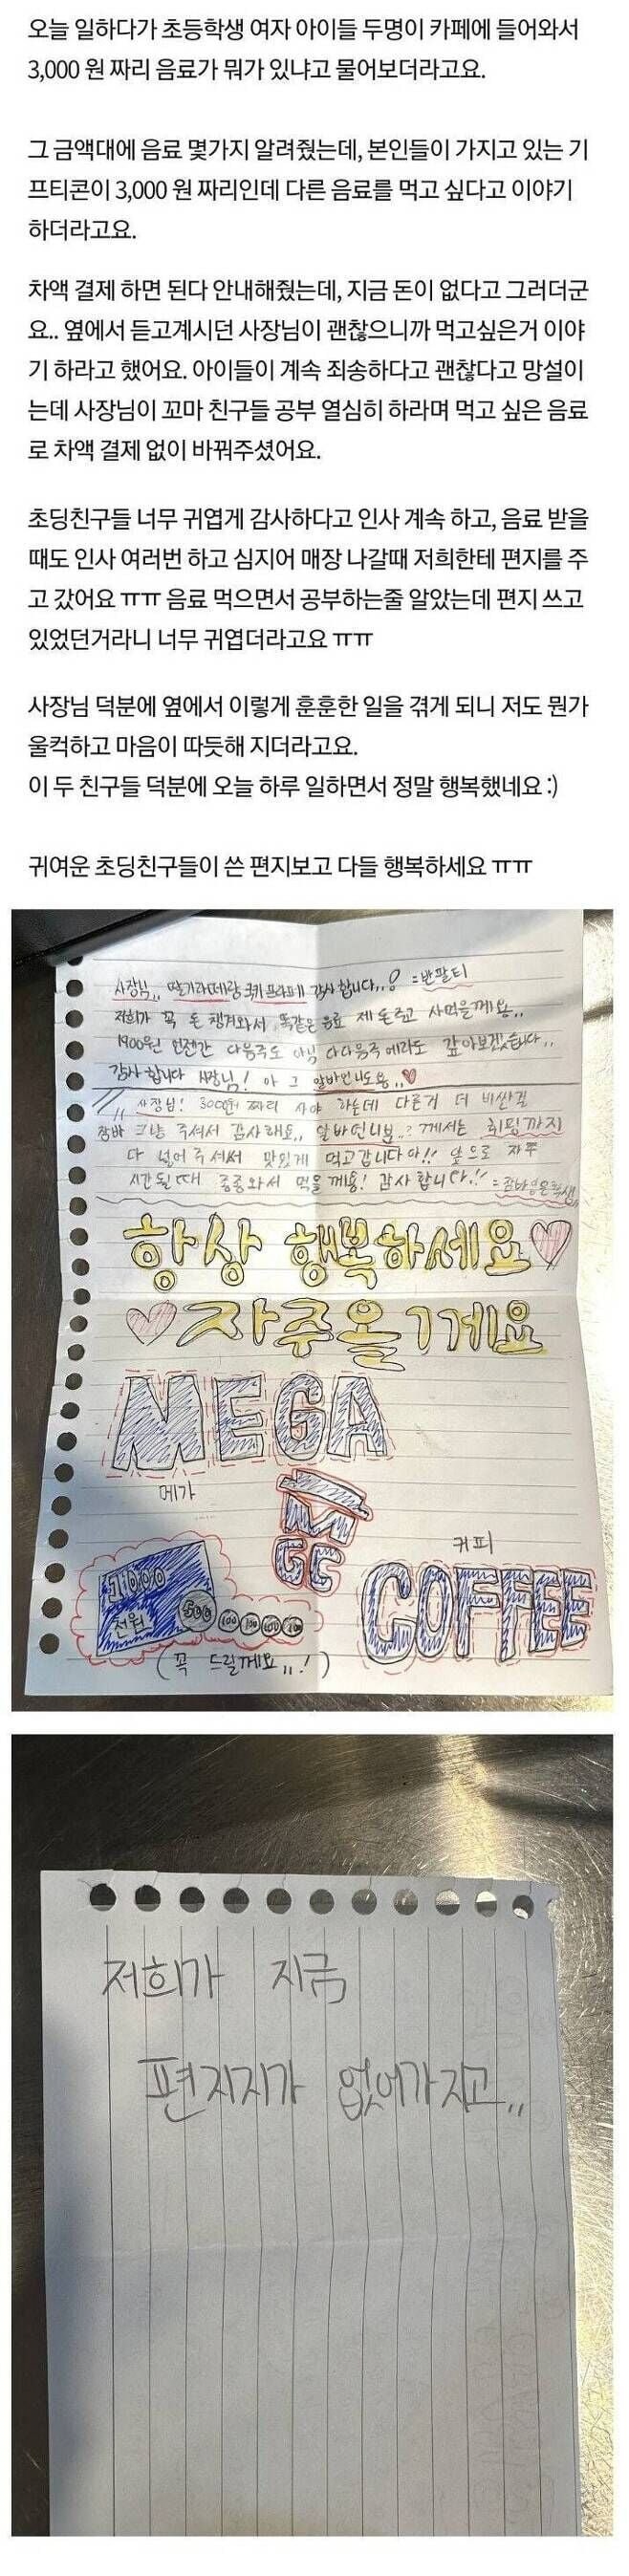 오늘 일하다가 초등학생 여자 아이들 두명이 카페에 들어와서
3,000 원 짜리 음료가 뭐가 있냐고 물어보더라고요.
그 금액대에 음료 몇가지 알려줬는데, 본인들이 가지고 있는 기
프티콘이 3,000 원 짜리인데 다른 음료를 먹고 싶다고 이야기
하더라고요.
차액 결제 하면 된다 안내해줬는데, 지금 돈이 없다고 그러더군
요.. 옆에서 듣고계시던 사장님이 괜찮으니까 먹고싶은거 이야
기 하라고 했어요. 아이들이 계속 죄송하다고 괜찮다고 망설이
는데 사장님이 꼬마 친구들 공부 열심히 하라며 먹고 싶은 음료
로 차액 결제 없이 바꿔주셨어요.
초딩친구들 너무 귀엽게 감사하다고 인사 계속 하고, 음료 받을
때도 인사 여러번 하고 심지어 매장 나갈때 저희한테 편지를 주
고 갔어요 ㅠㅠ 음료 먹으면서 공부하는줄 알았는데 편지 쓰고
있었던거라니 너무 귀엽더라고요 ㅠㅠ
사장님 덕분에 옆에서 이렇게 훈훈한 일을 겪게 되니 저도 뭔가
울컥하고 마음이 따듯해 지더라고요.
이 두 친구들 덕분에 오늘 하루 일하면서 정말 행복했네요 :)
귀여운 초딩친구들이 쓴 편지보고 다들 행복하세요 ㅠㅠ
사장님,, 딸기라떼랑 쿠키프라페 감사합니다..! =반팔티
저희가 꼭 돈 챙겨와서 똑같은 음료 제 돈주고 사먹을께요..
1900원 언젠간 다음주도 아님 다다음주에라도 갚아보겠습니다..
감사합니다 사장님! 아 그 알바언니도용..♥
사장님! 3000원 짜리 사야 하는데 다른거 더 비싼걸
그냥 주셔서 감사해요.. 알바언니분..? 께서는 휘핑까지
다 넣어주셔서 맛있게 먹고갑니다아!! 앞으로 자주
시간될때 종종와서 먹을께용! 감사합니다!!
항상 행복하세요♡
♡자주올게요
MEGA
메가
M
GC
커피
COFFEE
1000
천원
500 100 100 100 100
(꼭 드릴께요,,!)
저희가 지금
편지지가 없어가지고..